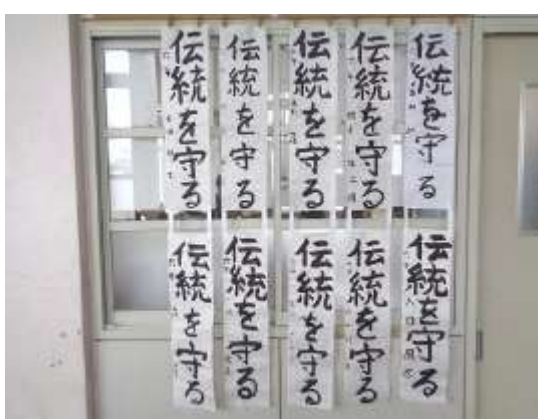 伝統を守る
伝統を守る
伝統を守る
伝統を守る
伝統を守る
伝統を守る
伝統を守る
伝統を守る
伝統を守る
伝統を守る